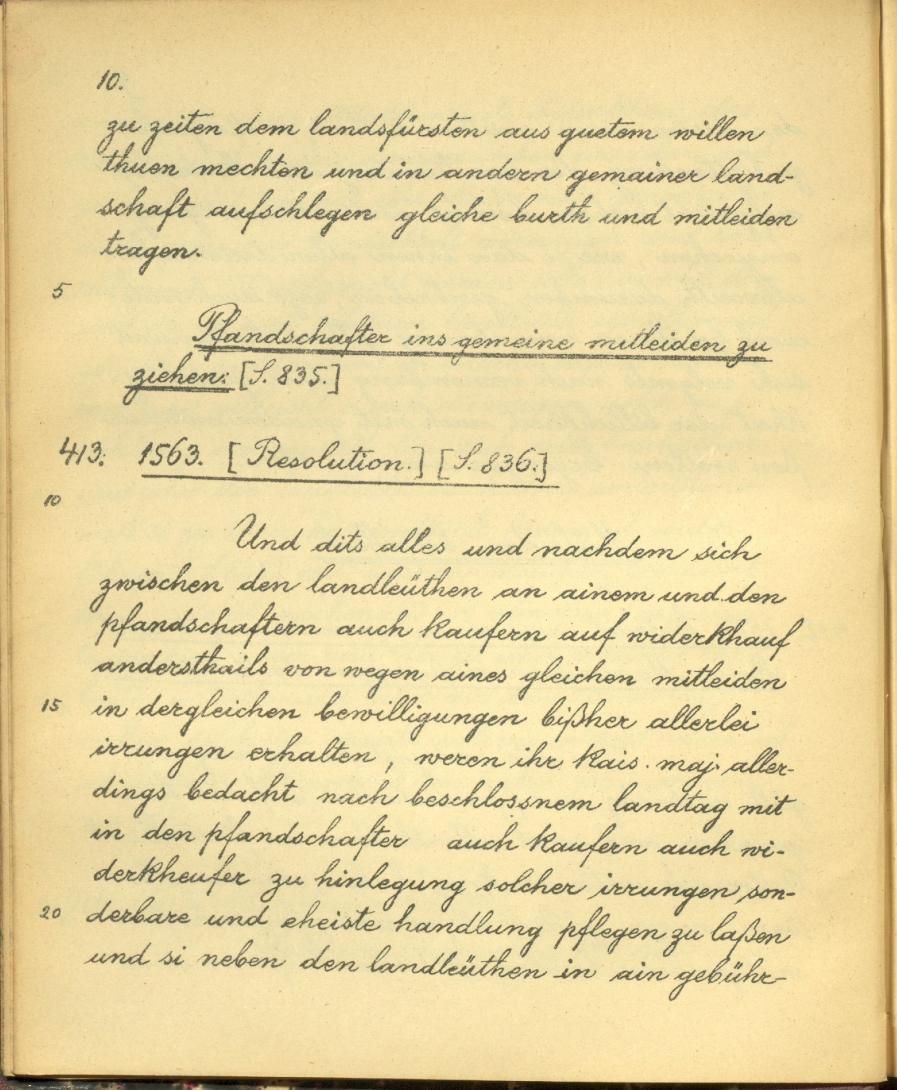 10.
zu zeiten dem landsfürsten aus guetem willen
thuen mechten und in andern gemainer land-
schaft aufschlegen gleiche burth und mitleiden
tragen.
5
Pfandschafter ins gemeine mitleiden zu
ziehen: [S. 835.]
413. 1563. [Resolution.] [S. 836.]
10
Und dits alles und nachdem sich
zwischen den landleüthen an ainem und den
pfandschaftern auch kaufern auf widerkhauf
andersthails von wegen aines gleichen mitleiden
15 in dergleichen bewilligungen bißher allerlei
irrungen erhalten, weren ihr kais. maj. aller-
dings bedacht nach beschlossnem landtag mit
in den pfandschafter auch kaufern auch wi-
derkheufer zu hinlegung solcher irrungen son-
20 derbare und eheiste handlung pflegen zu laßen
und si neben den landleüthen in ain gebühr-